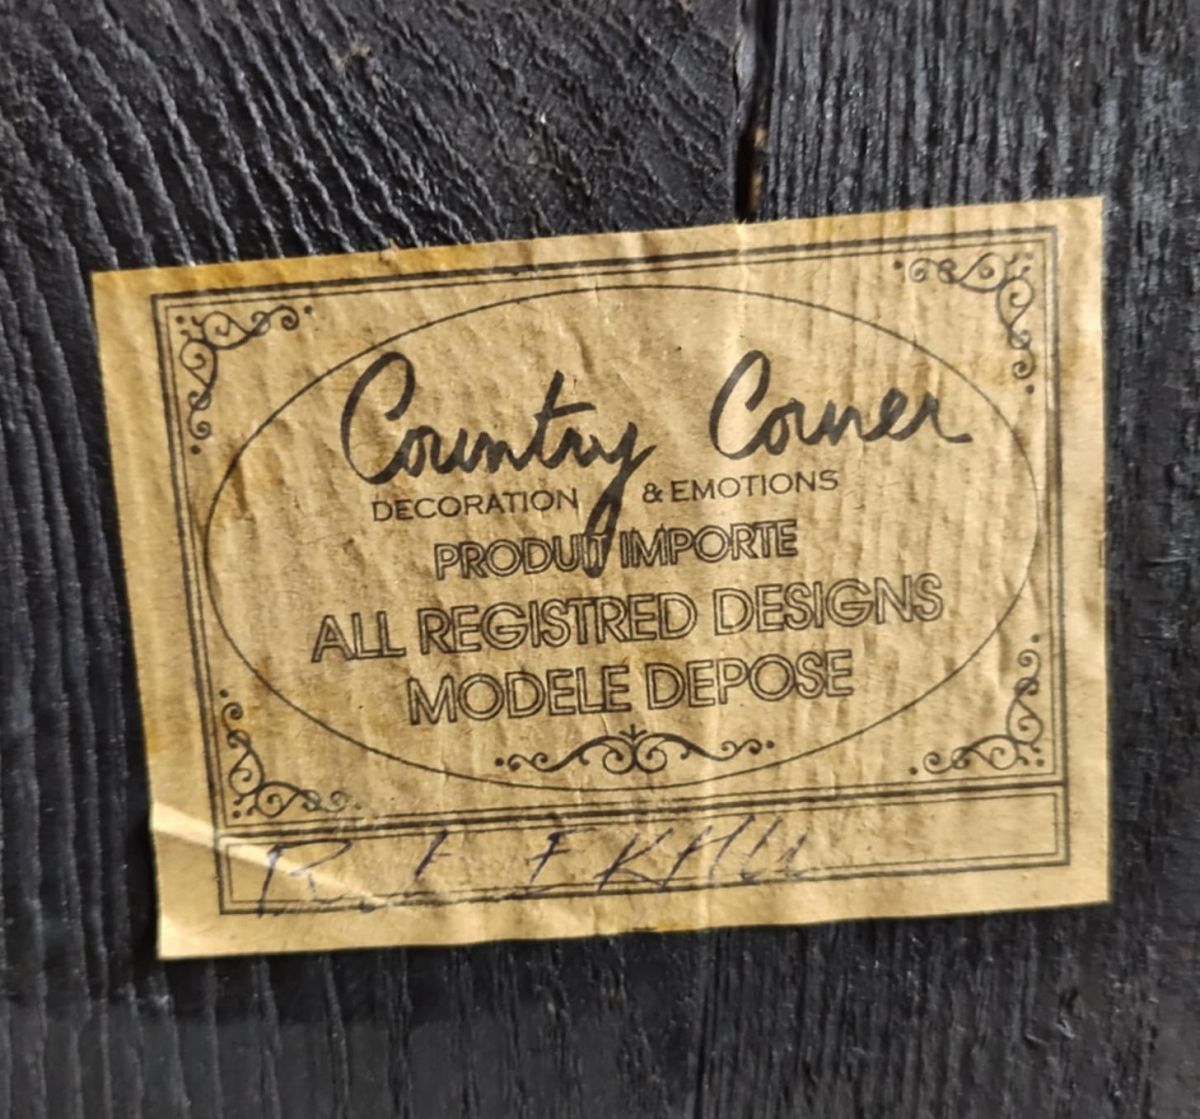 Country Corner
DECORATION & EMOTIONS
PRODUIT IMPORTE
ALL REGISTRED DESIGNS
MODELE DEPOSE